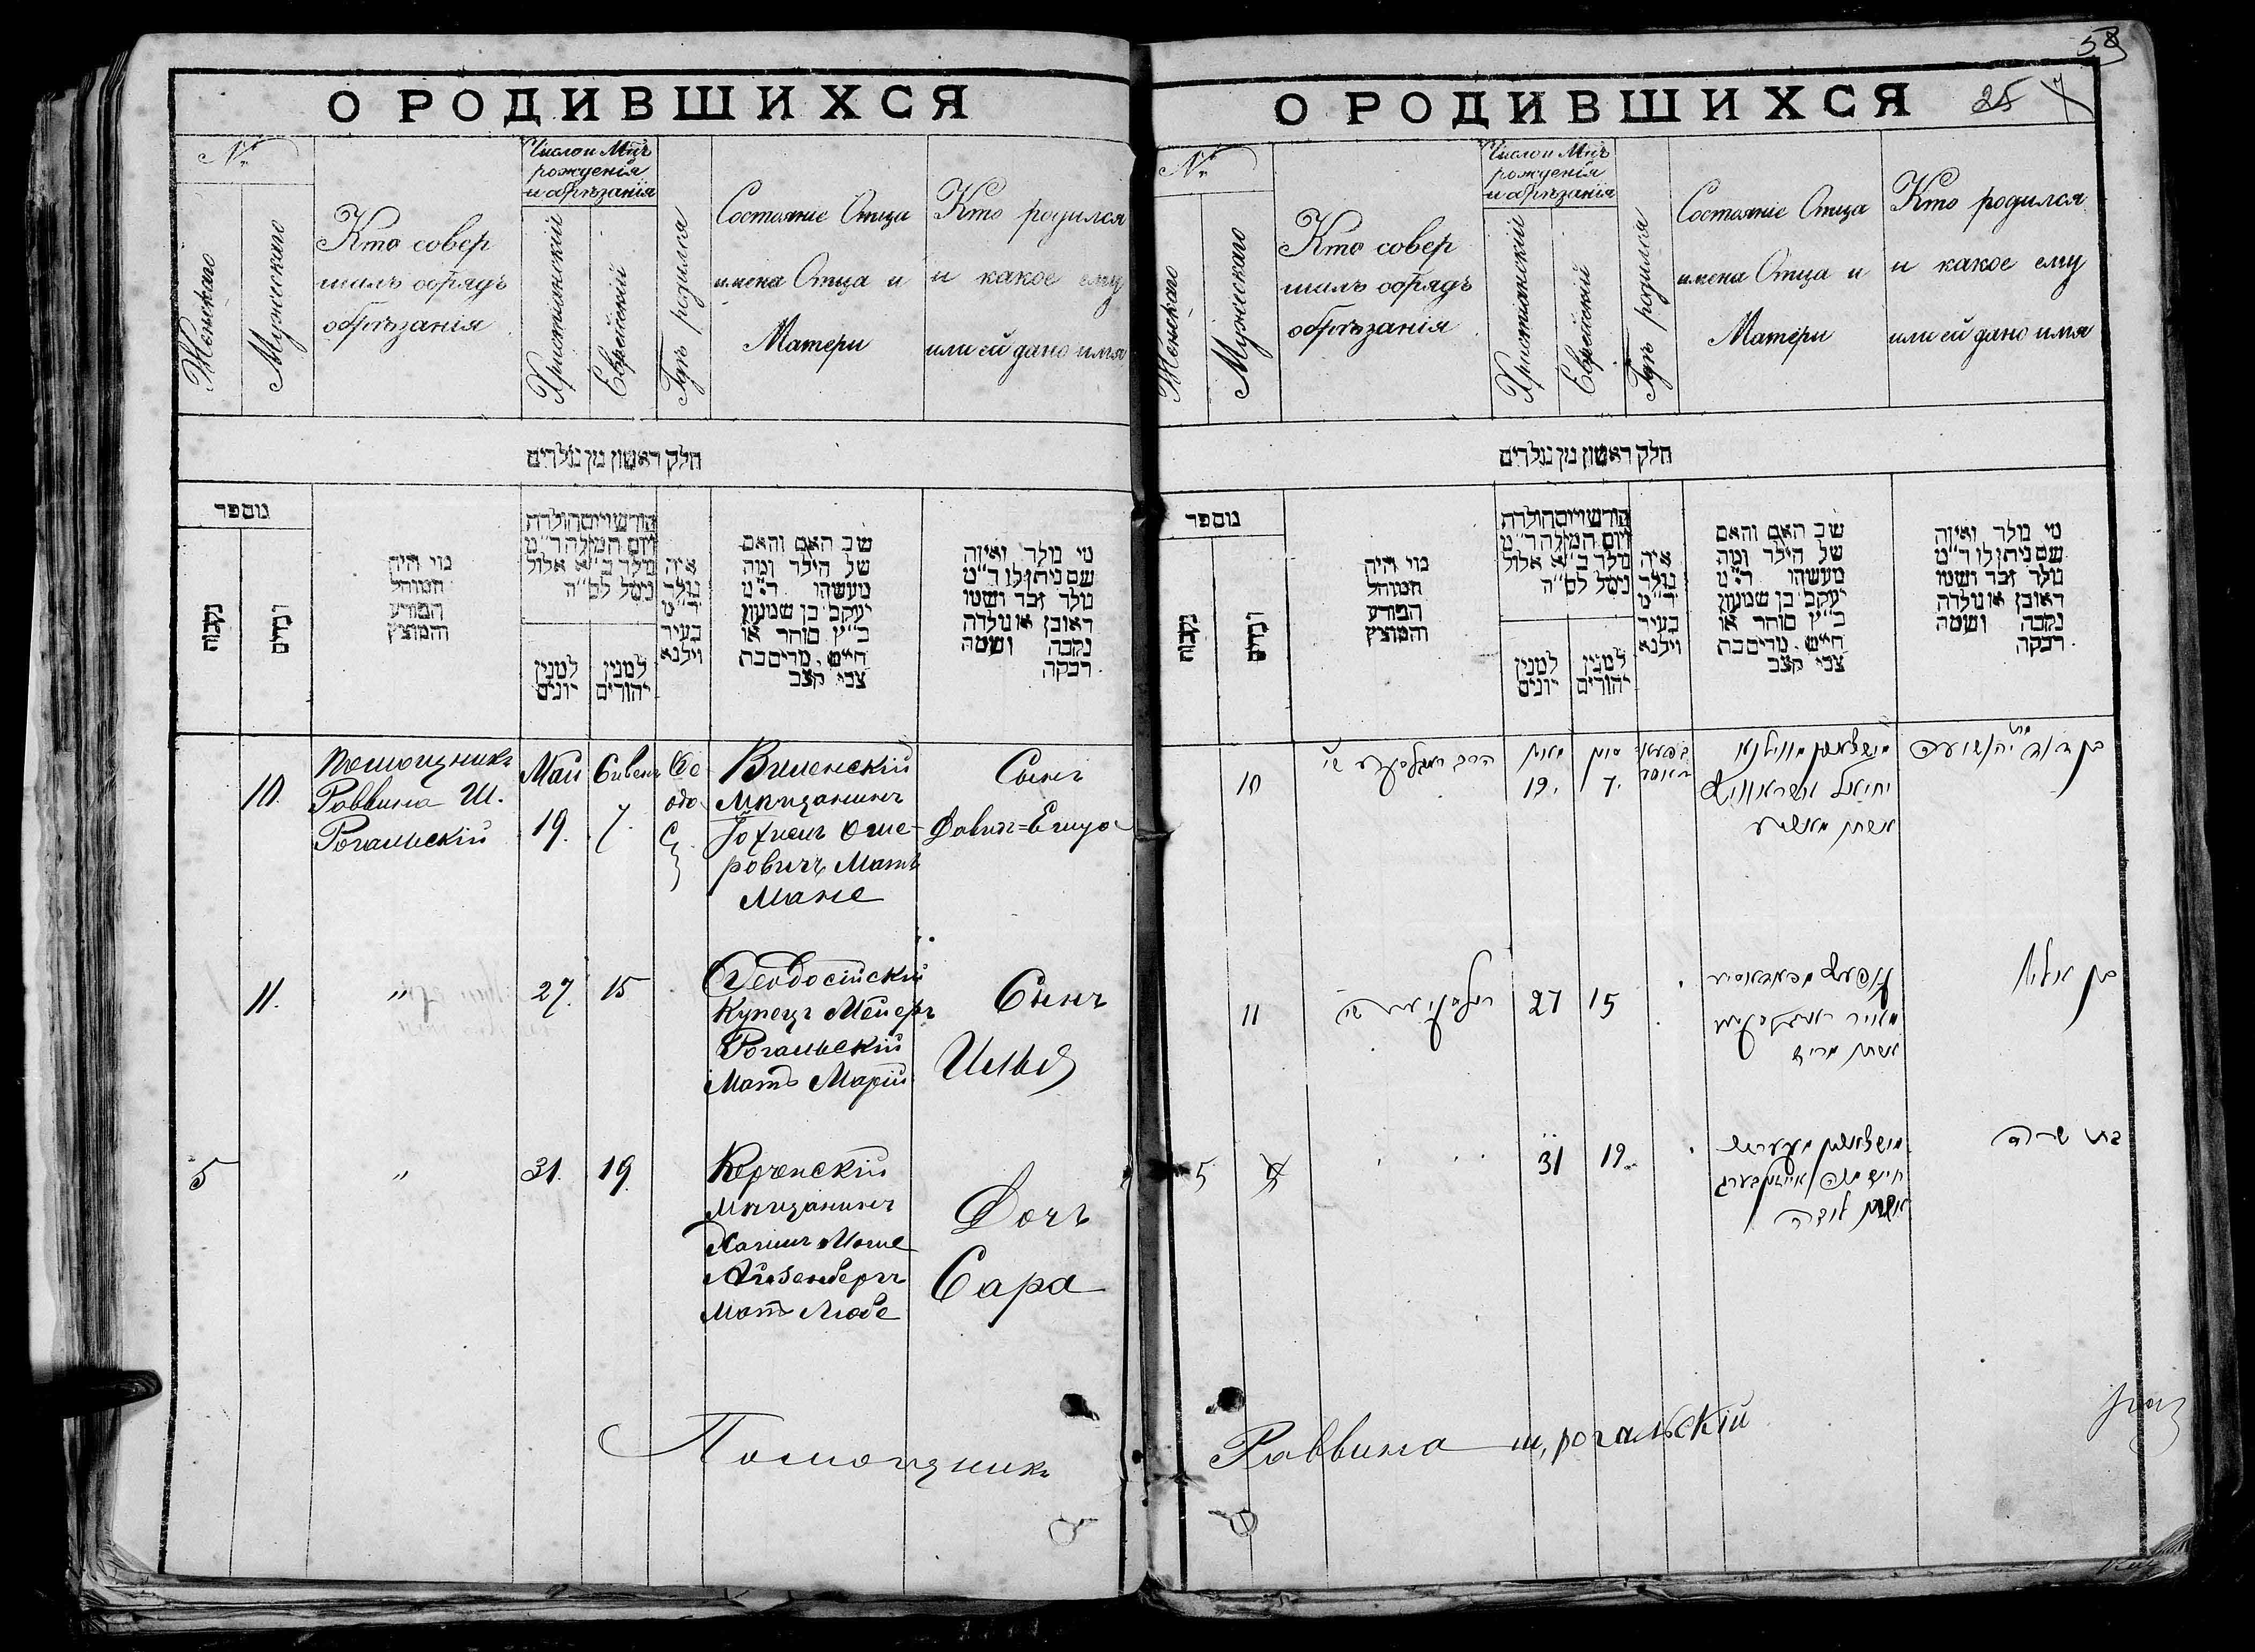 О РОДИВШИХСЯ
№
Женскаго
Мужескаго
Кто совер
шилъ обрядъ
обрѣзанія
Число и Мцъ
рожденія
и обрѣзанія
Христіанскій
Еврейскій
Гдѣ родился
Состояніе Отца
имена Отца и
Матери
Кто родился
и какое ему
или ей дано имя
חלק ראשון מן נולדים
נומפר
נקבות
זכרים
מי היה
המוהל
הפורע
והמוצץ
חודש ויום הולדת
ויום המילה ד״מ
נולד ב״א אלול
נימל לס״ה
למנין
יונים
למנין
יהודים
איה
נולד
ד״מ
בעיר
וילנא
שם האב והאם
של הילד ומה
מעשהו ד״מ
יעקב בן שמעון
כ״ץ סוחר או
חייט. מרים בת
צבי קצב
מי נולד ואיזה
שם ניתן לו ד״מ
נולד זכר ושמו
ראובן או נולדה
נקבה ושמה
רבקה.
10.
Помощникъ
Раввина Ш.
Рогальскій
Май
19.
Сивенъ
7.
Ѳе
одо
с
Виленскій
Мѣщанинъ
Іохиель Оше-
ровичъ Мать
Мане
Сынъ
Давидъ=Ешуа
11.
"
27.
15
Ѳеодосійскій
Купецъ Мейеръ
Рогальскій
Мать Марій
Сынъ
Илья
5
"
31.
19.
Керченскій
Мѣщанинъ
Хаимъ Моше
Айзенбергъ
Мать Любе
Дочь
Сара
Помощникъ
О РОДИВШИХСЯ
25
58
№
Женскаго
Мужескаго
Кто совер
шилъ обрядъ
обрѣзанія
Число и Мцъ
рожденія
и обрѣзанія
Христіанскій
Еврейскій
Гдѣ родился
Состояніе Отца
имена Отца и
Матери
Кто родился
и какое ему
или ей дано имя
חלק ראשון מן נולדים
נומפר
נקבות
זכרים
מי היה
המוהל
הפורע
והמוצץ
חודש ויום הולדת
ויום המילה ד״מ
נולד ב״א אלול
נימל לס״ה
למנין
יונים
למנין
יהודים
איה
נולד
ד״מ
בעיר
וילנא
שם האב והאם
של הילד ומה
מעשהו ד״מ
יעקב בן שמעון
כ״ץ סוחר או
חייט. מרים בת
צבי קצב
מי נולד ואיזה
שם ניתן לו ד״מ
נולד זכר ושמו
ראובן או נולדה
נקבה ושמה
רבקה.
10
מאי
19.
סיון
7.
יחיאל
אשתו
בן דוד יהושועה
11
27
15
מאיר
אשתו
בן אליי
5
31
19.
חיים משה אייזנבערג
אשתו
בת שרה
Раввина Ш. Рогальскій